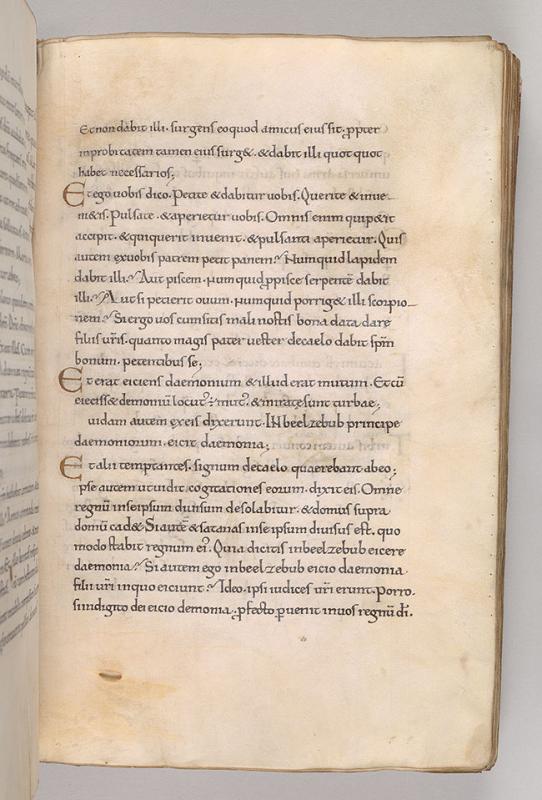 Et non dabit illi. surgens eo quod amicus eius sit. ꝓpter
inprobitatem tamen eius surg&. & dabit illi quot quot
habet necessarios;
Et ego uobis dico. Petite & dabitur uobis. Querite & inue
ni&is. Pulsate. & aperietur uobis. Omnis enim qui p&it
accipit. & qui querit inuenit. & pulsanti aperietur. Quis
autem ex uobis patrem petit panem? Numquid lapidem
dabit illi? Aut piscem. numquid ꝓ pisce serpentē dabit
illi? Aut si petierit ouum. numquid porrig& illi scorpio
nem? Si ergo uos cum sitis mali nostis bona data dare
filiis ur̄is. quanto magis pater uester de caelo dabit sp̄m
bonum. petentibus se;
Et erat eiciens daemonium & illud erat mutum. Et cū
eieciss& demoniū locut' ÷ mut'. & mirate sunt turbae;
uidam autem ex eis dixerunt. IN beelzebub principe
daemoniorum. eicit daemonia;
Et alii temptantes. signum de caelo quaerebant ab eo;
pse autem ut uidit cogitationes eorum. dixit eis. Omne
regnū in se ipsum diuisum desolabitur. & domus supra
domū cad&. Si autē & satanas in se ipsum diuisus est. quo
modo stabit regnum ei'. Quia dicitis in beelzebub eicere
daemonia? Si autem ego in beelzebub eicio daemonia
filii ur̄i in quo eiciunt? Ideo. ipsi iudices ur̄i erunt. Porro.
si in digito dei eicio demonia. ꝓfecto ꝑuenit in uos regnū dī.